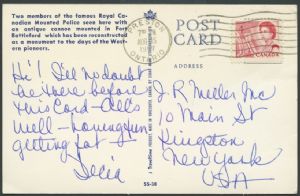 Two members of the famous Royal Canadian Mounted Police seen here with an antique cannon mounted in Fort Battleford which has been reconstructed as a monument to the days of the Western pioneers.
POST CARD
ADDRESS
PRESTON
ONTARIO
CANADA
Hi! I'll no doubt
be there before
this card - All's
well - having fun
getting fat.
Delia
J. R. Miller Mc
10 Main St
Kingston
New York
USA
SS-38